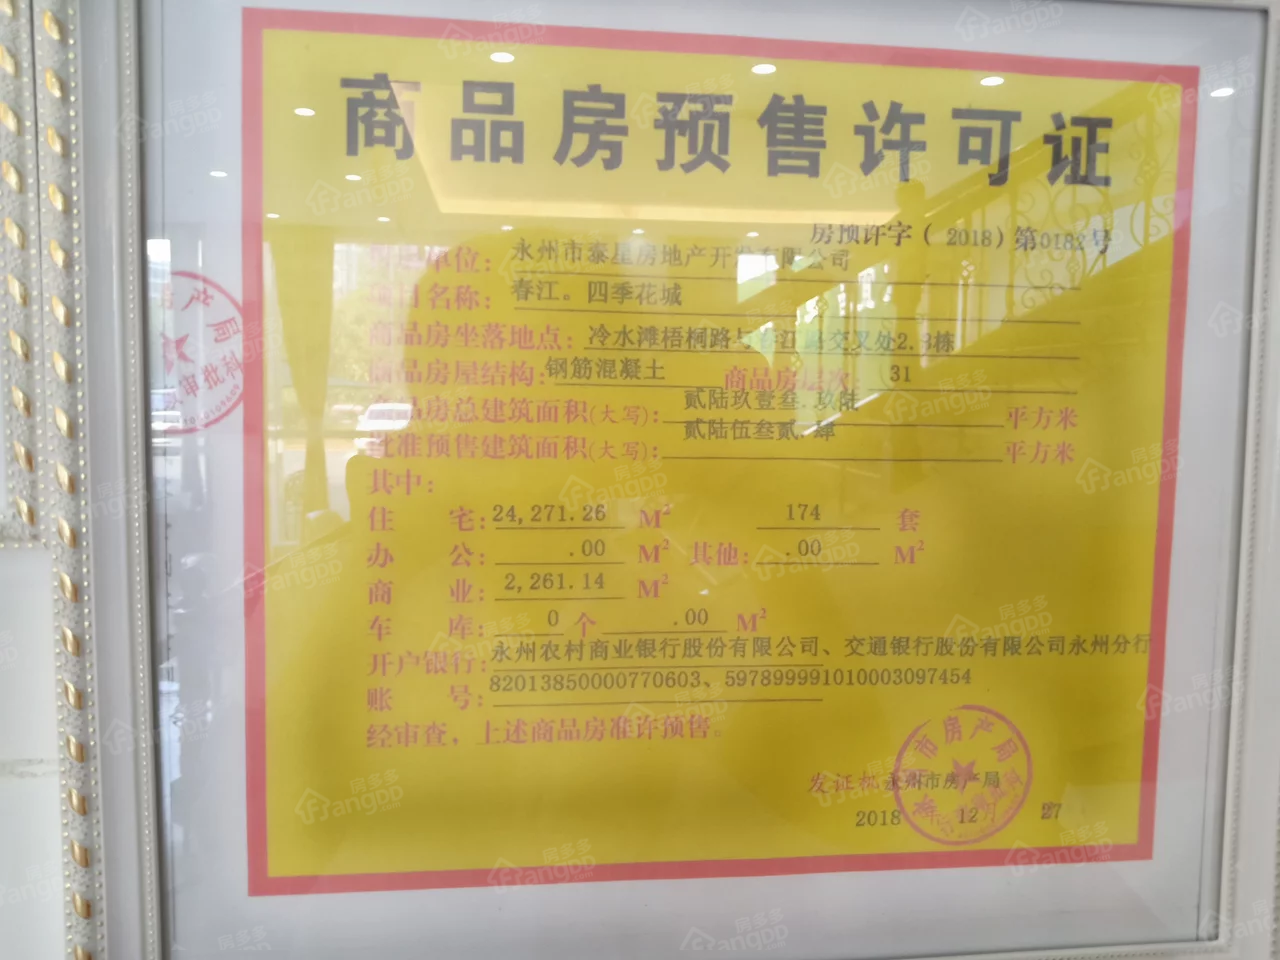 商品房预售许可证
房预许字（2018）第0182号
单位：永州市泰星房地产开发有限公司
项目名称：春江。四季花城
商品房坐落地点：冷水滩梧桐路与春江路交叉处2.3栋
商品房屋结构：钢筋混凝土 商品房层次：31
商品房总建筑面积(大写)：贰陆玖壹叁.玖陆 平方米
批准预售建筑面积(大写)：贰陆伍叁贰.肆 平方米
其中：
住宅：24,271.26 M² 174 套
办公：.00 M² 其他：.00 M²
商业：2,261.14 M²
车库：0 个 .00 M²
开户银行：永州农村商业银行股份有限公司、交通银行股份有限公司永州分行
账号：82013850000770603、597899991010003097454
经审查，上述商品房准许预售。
发证机 永州市房产局
2018 12月 27
市房产局
房多多
Fangdd